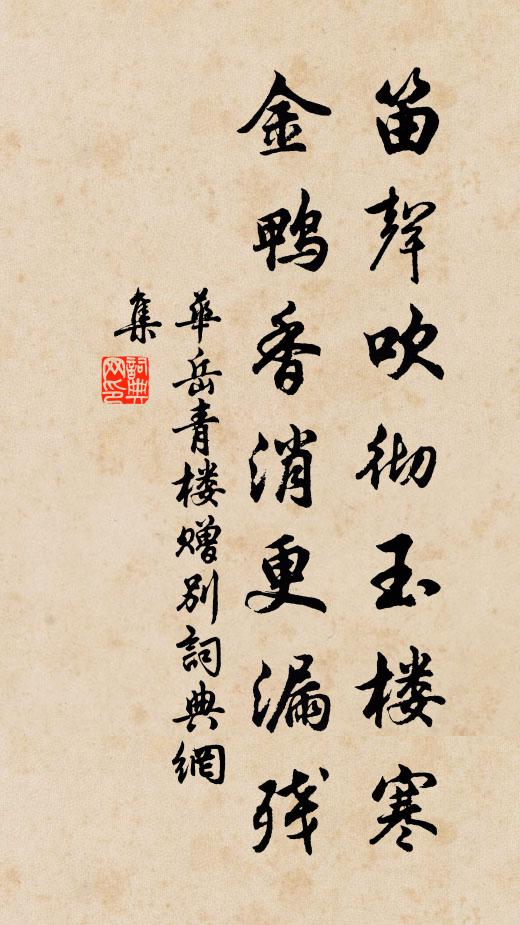 笛聲吹彻玉楼寒
金鴨香消更漏残
華岳青楼赠别詞典網
集
詞典网印